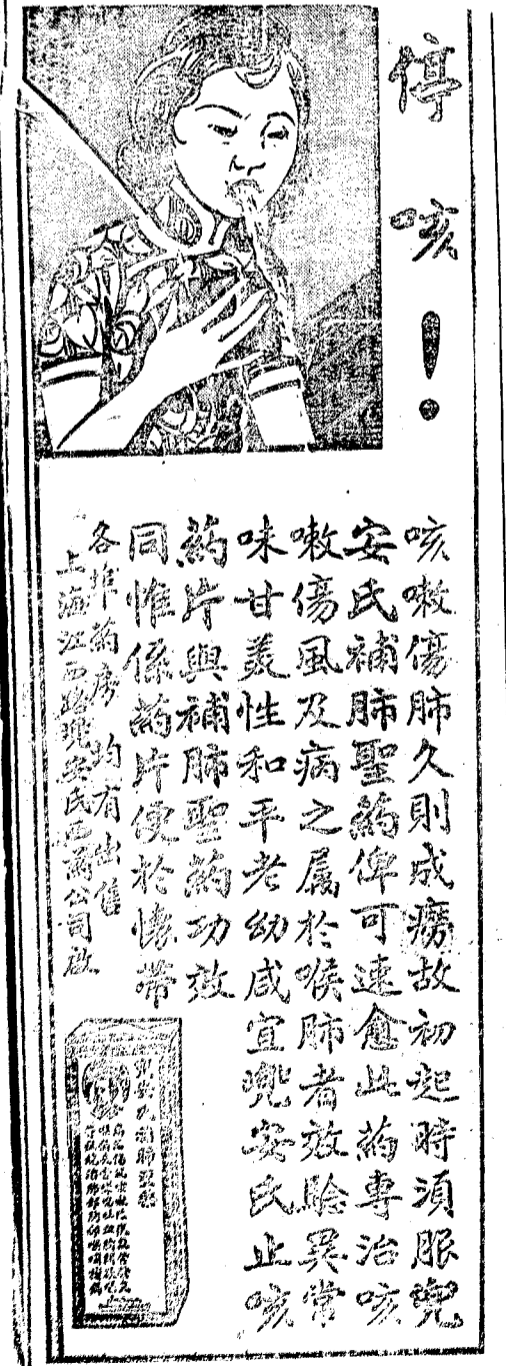 停咳！
咳嗽傷肺久則成癆故初起時須服兜
安氏補肺聖药俾可速愈此药專治咳
嗽傷風及病之屬於喉肺者效騐異常
味甘美性和平老幼咸宜兜安氏止咳
药片與補肺聖药功效
同惟係药片便於懷帶
各埠药房均有出售
上海江西路兜安氏西药公司啟